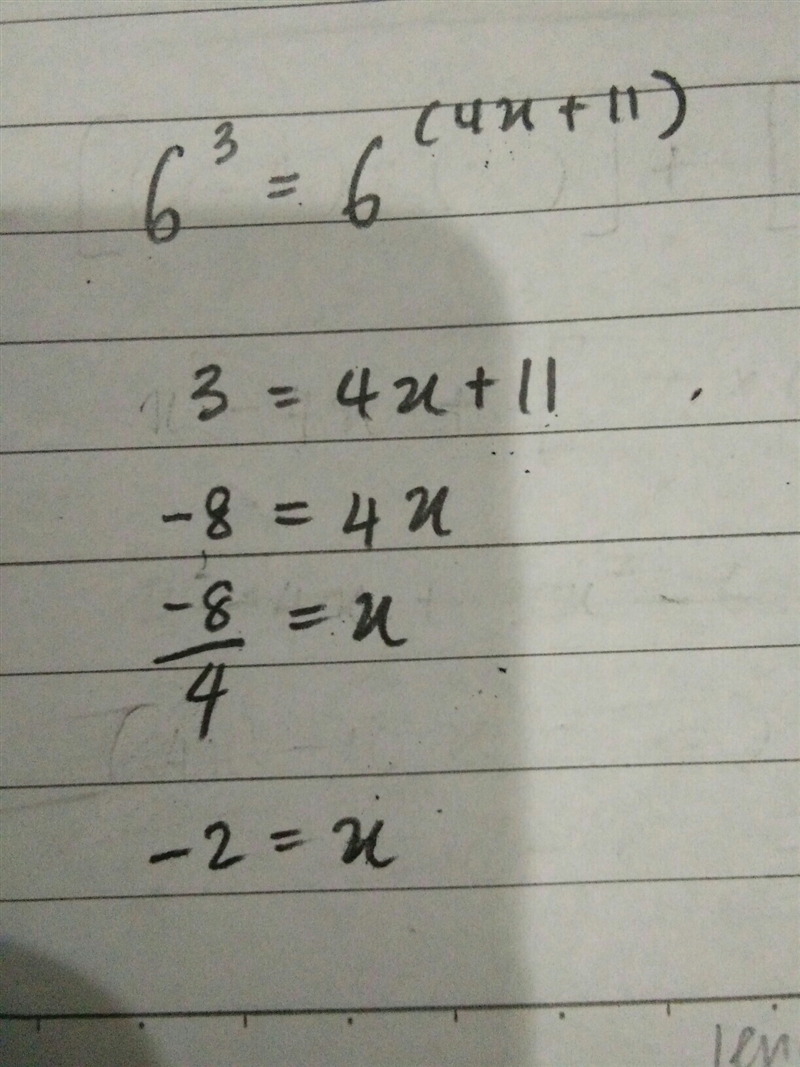 6³ = 6^(4x + 11)
3 = 4x + 11
-8 = 4x
-8/4 = x
-2 = x